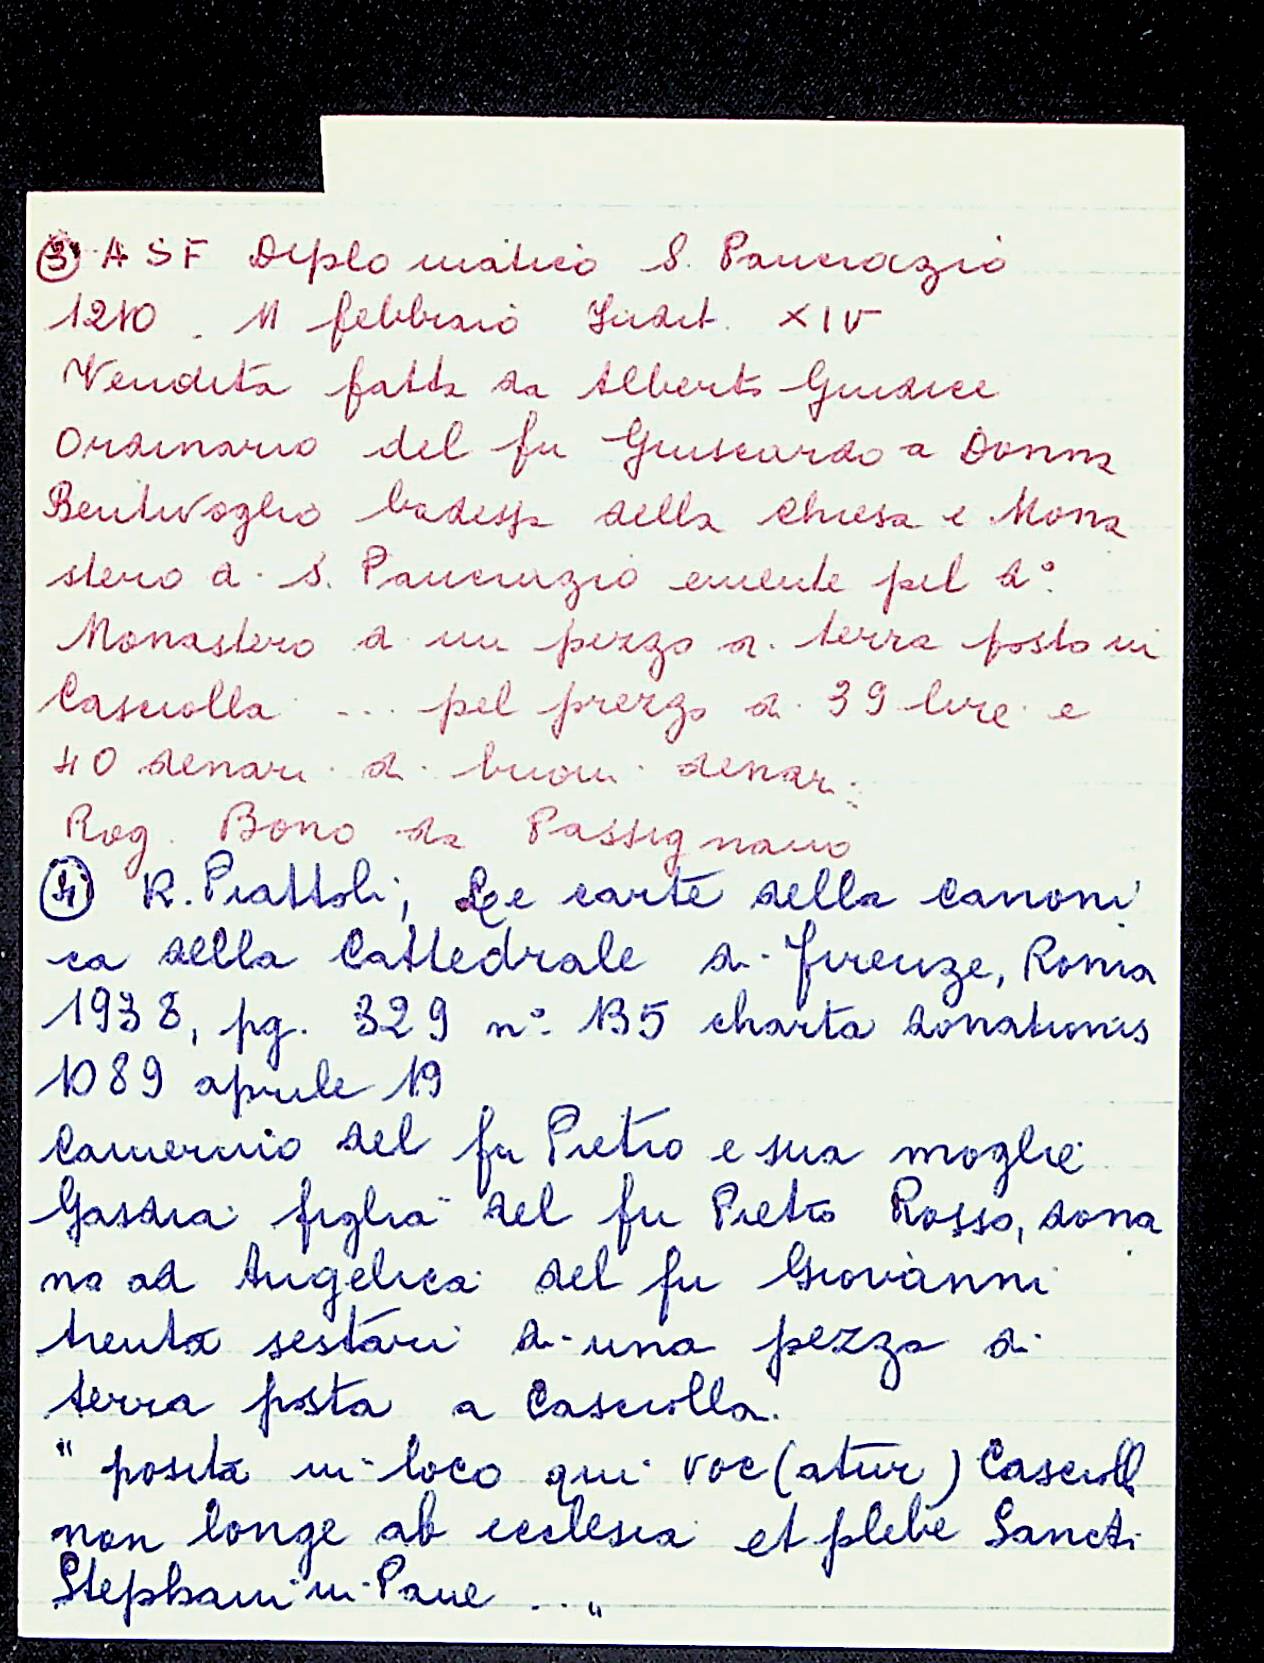 ③ ASF Diplomatico S. Pancrazio
1210. 11 febbraio Indit. XIV
Vendita fatta da Alberto Giudice
Ordinario del fu Guiscardo a Donna
Bentivoglio badessa della Chiesa e Mona
stero di S. Pancrazio emente pel do
Monastero di un pezzo di terra posto in
Casciolla ... pel prezzo di 39 lire e
40 denari di buoni denari.
Rog. Bono da Passignano
④ R. Piattoli, Le carte della canoni
ca della Cattedrale di Firenze, Roma
1938, pg. 329 n° 135 charta donationis
1089 aprile 19
Camerino del fu Pietro e sua moglie
Gasdia figlia del fu Pietro Rosso, dona
no ad Angelica del fu Giovanni
trenta sestari di una pezza di
terra posta a Casciolla.
" posita in loco qui voc(atur) Cascioll
non longe ab ecclesia et plebe Sancti
Stephani in Pane ... "